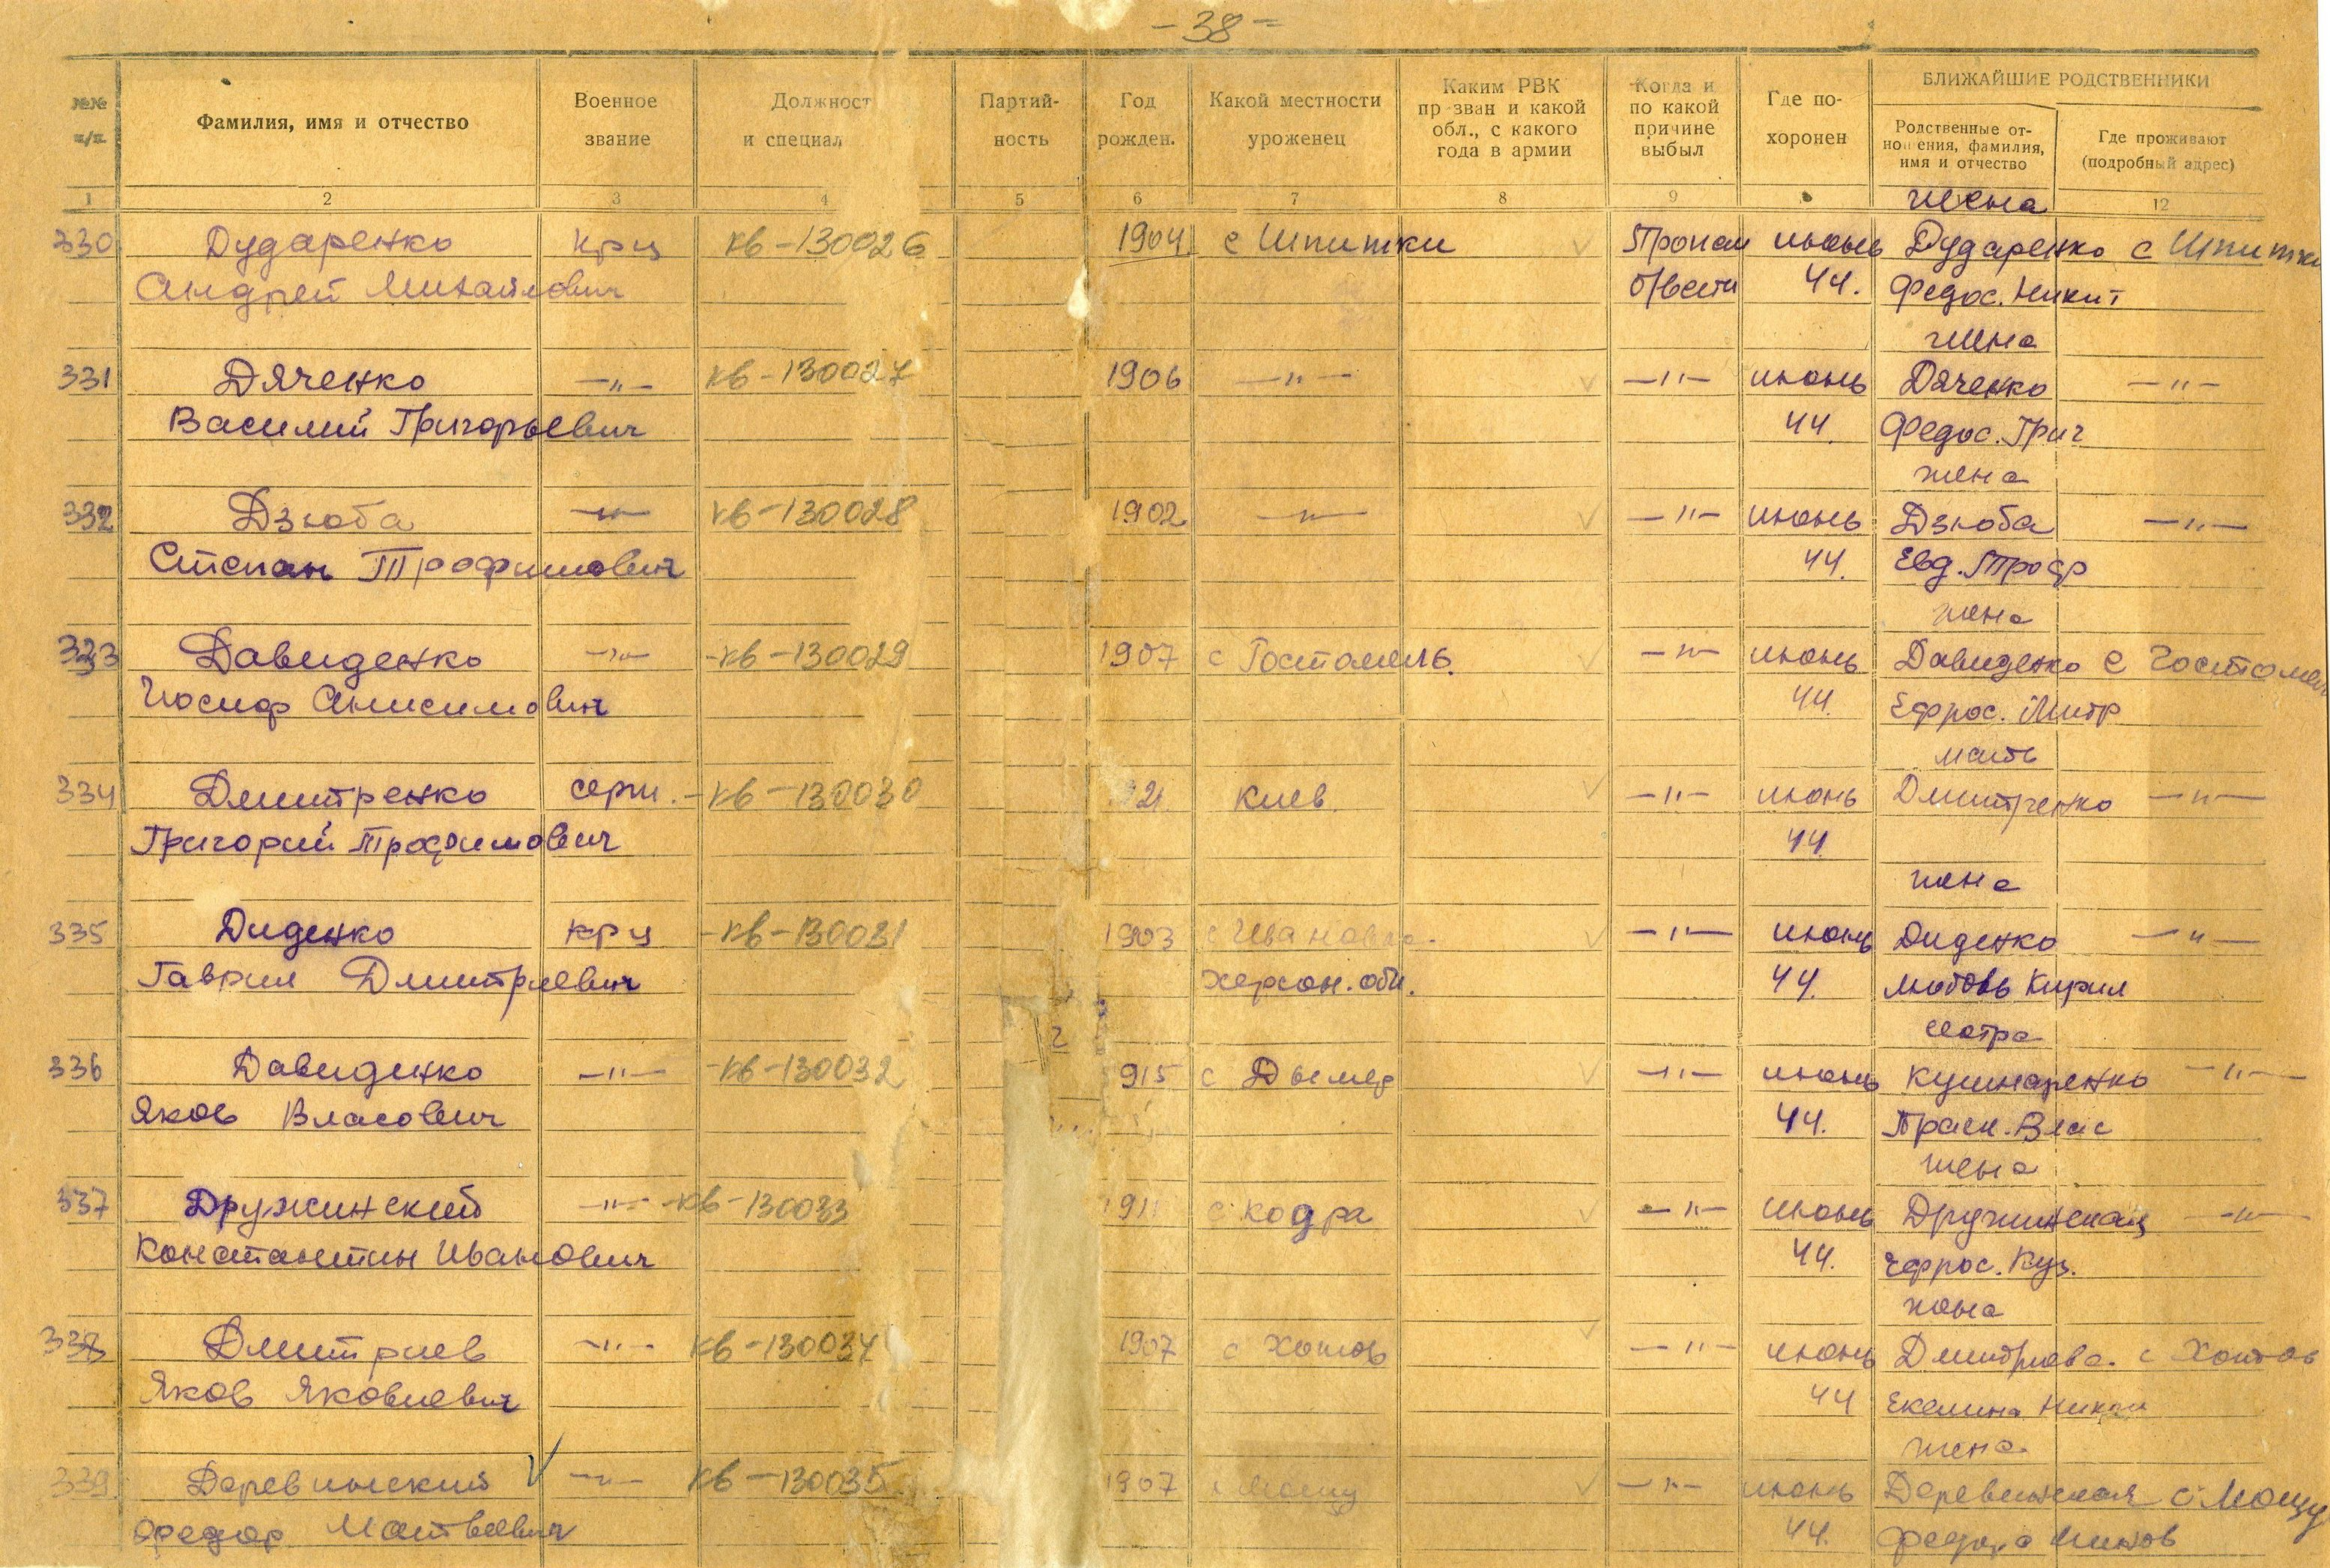 - 38 -
№№ п/п
Фамилия, имя и отчество
Военное звание
Должност и специал
Партий- ность
Год рожден.
Какой местности уроженец
Каким РВК пр зван и какой обл., с какого года в армии
Когда и по какой причине выбыл
Где по- хоронен
БЛИЖАЙШИЕ РОДСТВЕННИКИ
Родственные от- но ения, фамилия, имя и отчество
Где проживают (подробный адрес)
1 2 3 4 5 6 7 8 9 12
жена
330 Дударенко крц кв-130026 1904 с Шпитки Пропал июнь Дударенко с Шпитки
Андрей Михайлович б/вести 44. Федос. Никит
жена
331 Дяченко —"— кв-130027 1906 —"— —"— июнь Дяченко —"—
Василий Григорьевич 44. Федос. Григ
жена
332 Дзюба —"— кв-130028 1902 —"— —"— июнь Дзюба —"—
Степан Трофимович 44. Евд. Троф
жена
333 Давиденко —"— кв-130029 1907 с Гостомель. —"— июнь Давиденко с Гостомел
Иосиф Анисимович 44. Ефрос. Митр
мать
334 Дмитренко серж. кв-130030 21 Киев. —"— июнь Дмитренко —"—
Григорий Трофимович 44.
жена
335 Диденко крц кв-130031 1903 с Ивановка. —"— июнь Диденко —"—
Гаврил Дмитриевич Херсон. обл. 44. Любовь Кирил
сестра
336 Давиденко —"— кв-130032 915 с Дымер —"— июнь Кушнаренко —"—
Яков Власович 44. Праск. Влас
жена
337 Дружинский —"— кв-130033 1911 с Кодра —"— июнь Дружинская —"—
Константин Иванович 44. Ефрос. Куз.
жена
338 Дмитриев —"— кв-130034 1907 с Хотов —"— июнь Дмитриева. с Хотов
Яков Яковлевич 44
жена
339. Деревинский —"— кв-130035 1907 с Мощу —"— июнь Деревинская с Мощу
Федор Матвеевич 44.